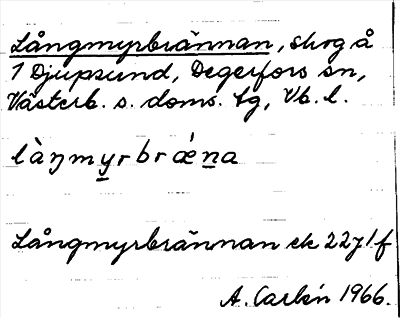 Långmyrbrännan, skog å
1 Djupsund, Degerfors sn,
Västerb. s. doms. tg, Vb. l.
làŋmy̲rbrǽn̲a
Långmyrbrännan ek 22j1f
A. Carlén 1966.